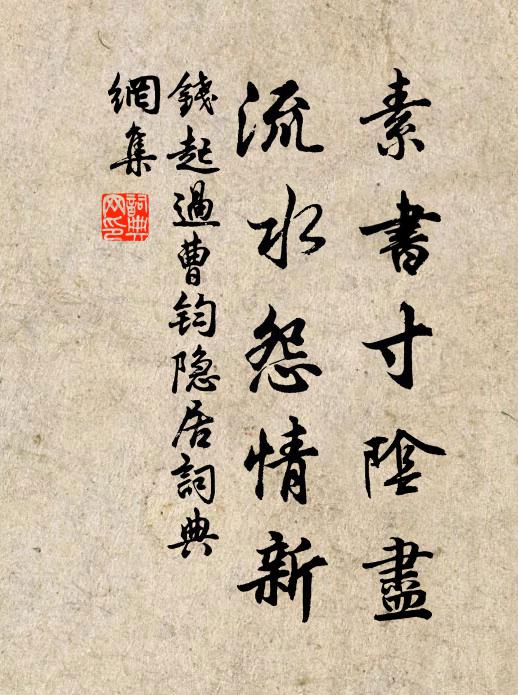 素書寸陰盡
流水怨情新
錢起過曹鈞隐居詞典
網集
詞典网印